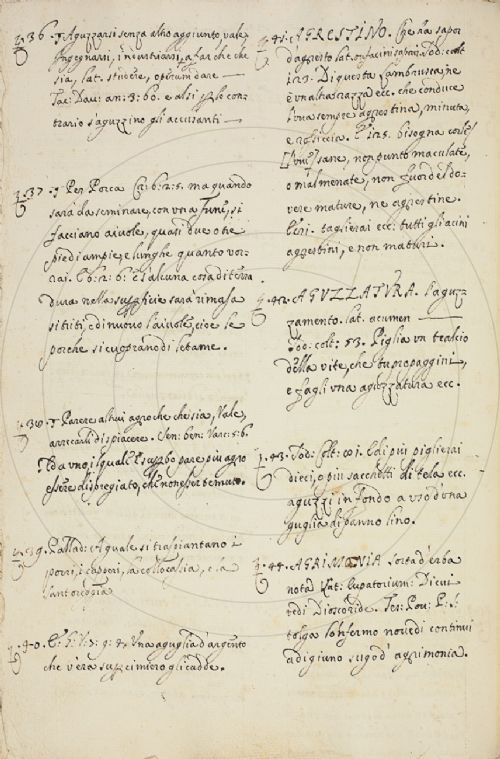 36. Aguzzarsi senza altro aggiunto, vale
ingegnarsi, industriarsi, a far che che
sia, lat. studere, operam dare —
Tac: Dav: an: 3: 60. e altsi
trario s'aguzzino gli accusanti —
37. Per Porca Cr: 6: 2: 5. ma quando
sarà da seminare, con una fune, si
facciano aiuole, quasi due o tre
piedi ampie, e lunghe quanto vor-
rai. E 6: 2: 6: e s'alcuna cosa di terra
dura nella superficie sarà rimasa
si triti, e di nuovo l'aiuole, cioè le
porche si cuoprano di letame.
38. Parere altrui agro che che sia, Vale,
arrecarli dispiacere. Sen: ben: Varc: 5: 6.
Ed a uno i quale pare più agro
essere dispregiato, che non esser temuto.
39. Pallad: Aguale si traspiantano i
porri, i capperi, la collocasia, e la
santoreggia
40. Una aguglia d'argento
che v'era su, primiero gli cadde.
41. AGRESTINO. Che ha sapor
d'agresto lat. Sod: colt
123. Di questa lambrusca, ne
è un'altra razza ecc. che conduce
l'uva sempre agrestina, minuta,
e rossiccia. E 125. bisogna corle
l'uve sane, non punto maculate,
o malmenate, non fuor del do-
vere mature, ne agrestine.
taglierai ecc: tutti gli acini
agrestini, e non maturi.
42. AGUZZATURA. l'aguz-
zamento. lat. acumen —
Sod: colt: 53. Piglia un tralcio
della vite, che tu propaggini,
e fagli una aguzzatura ecc.
43. Sod: Colt: 001. E di più piglierai
dieci, o più sacchetti di tela ecc.
aguzzi in fondo a uso d'una
guglia di panno lino.
44. AGRIMONIA sorta d'erba
nota lat: Eupatorium: Dicui
vedi Dioscoride. Tes: Pov: P: S:
tolga lo 'nfermo nove dì continui
a digiuno sugo d'agrimonia.